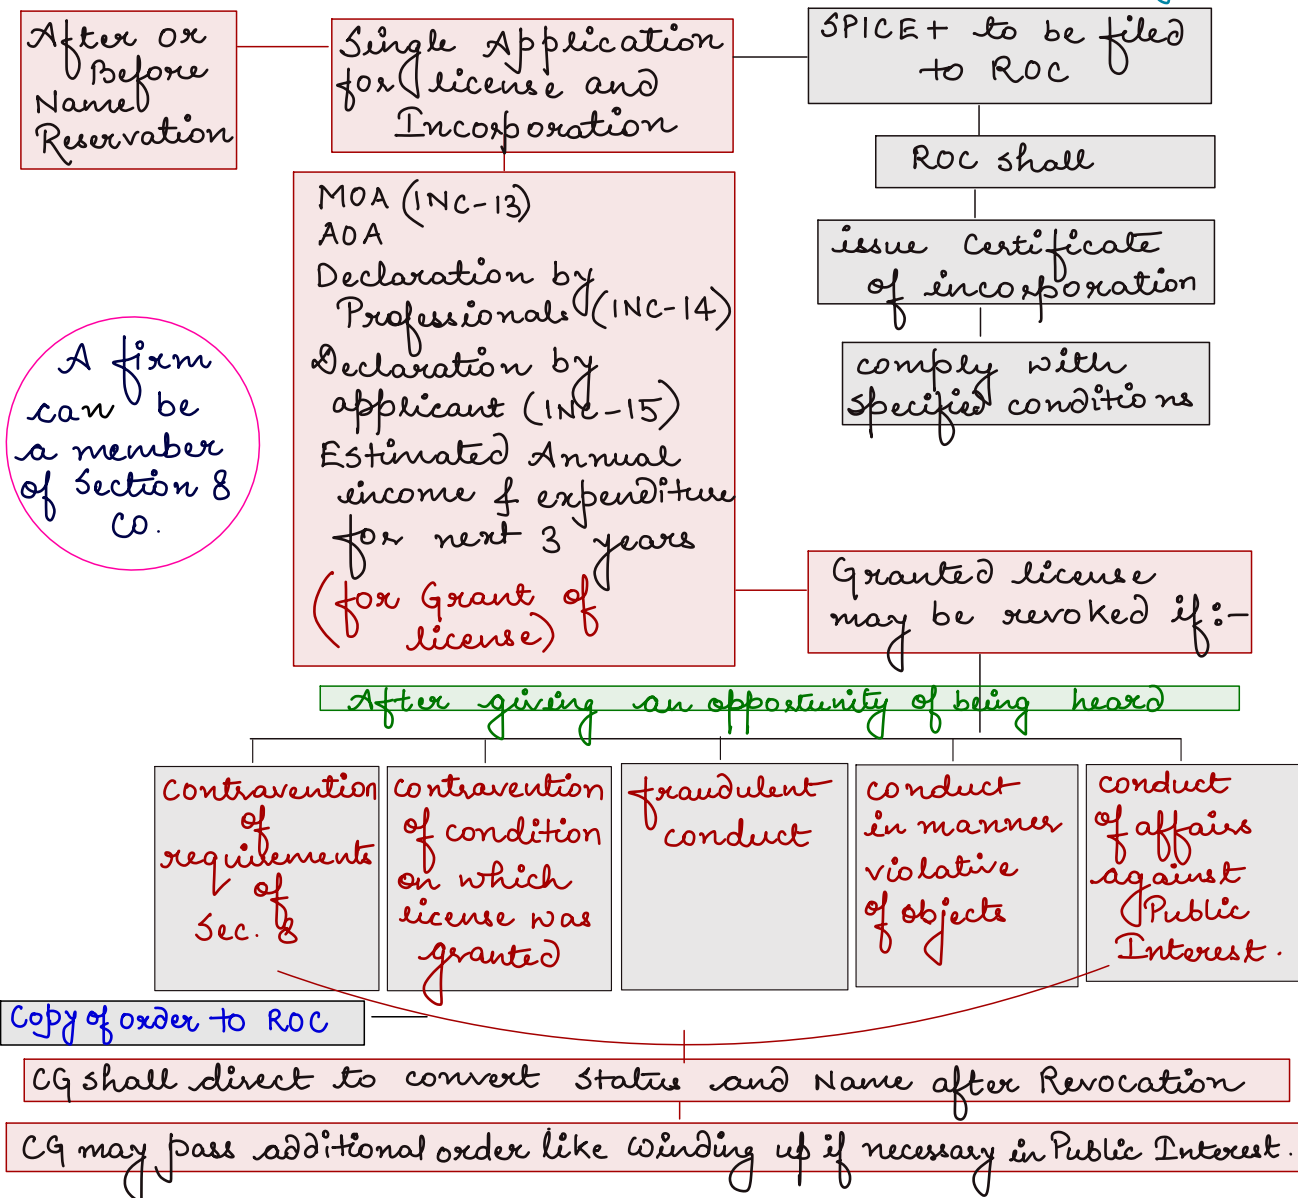 After or
Before
Name
Reservation
Single Application
for license and
Incorporation
SPICE+ to be filed
to ROC
ROC shall
issue Certificate
of incorporation
comply with
specified conditions
MOA (INC-13)
AOA
Declaration by
Professionals (INC-14)
Declaration by
applicant (INC-15)
Estimated Annual
income & expenditure
for next 3 years
(for Grant of
license)
A firm
can be
a member
of Section 8
CO.
Granted license
may be revoked if:-
After giving an opportunity of being heard
Contravention
of
requirements
of
Sec. 8
contravention
of condition
on which
license was
granted
fraudulent
conduct
conduct
in manner
violative
of objects
conduct
of affairs
against
Public
Interest.
Copy of order to ROC
CG shall direct to convert Status and Name after Revocation
CG may pass additional order like Winding up if necessary in Public Interest.